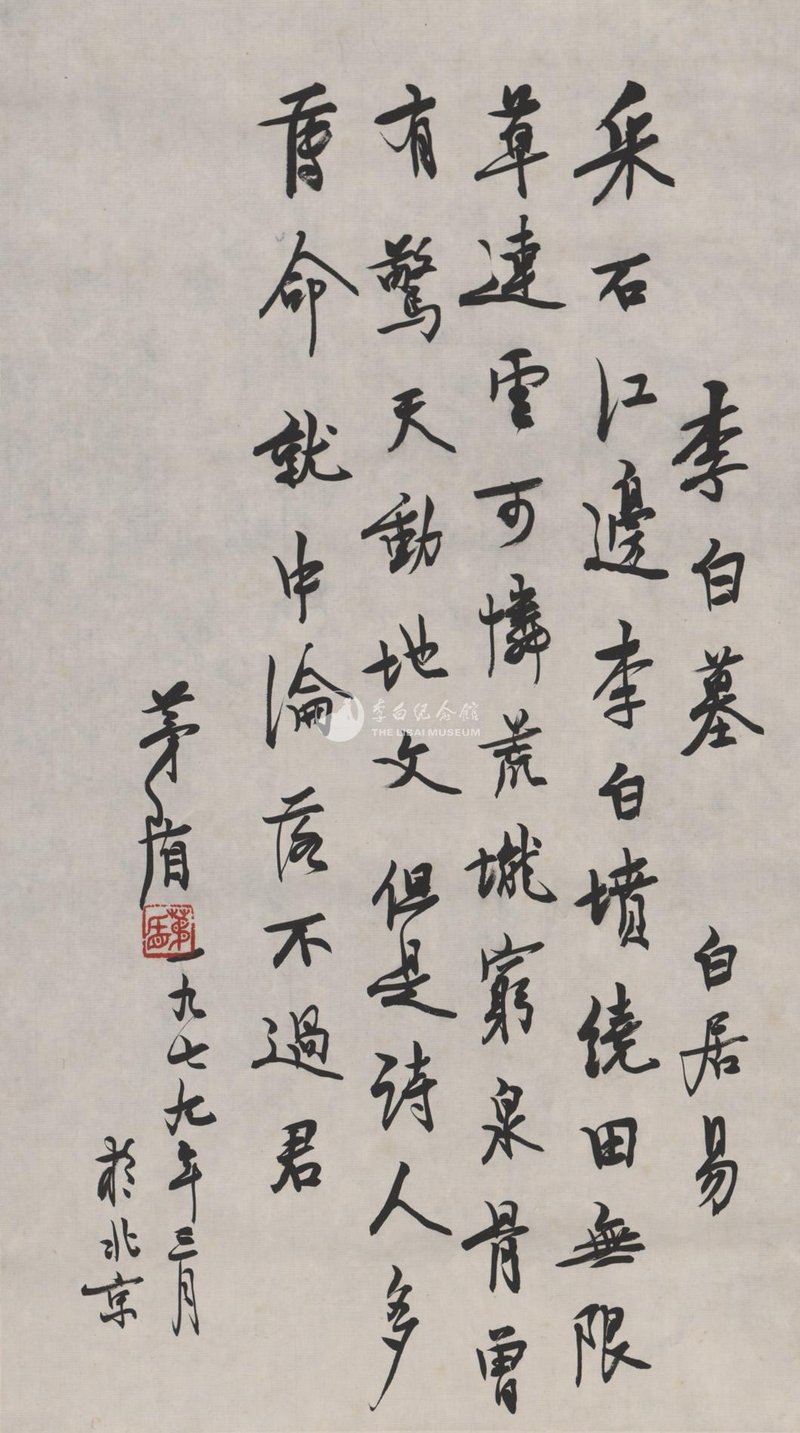 李白墓 白居易
采石江邊李白墳繞田無限
草連雲可憐荒壠窮泉骨曾
有驚天動地文但是詩人多
薄命就中淪落不過君
茅盾 一九七九年三月
於北京
李白纪念馆
THE LIBAI MUSEUM